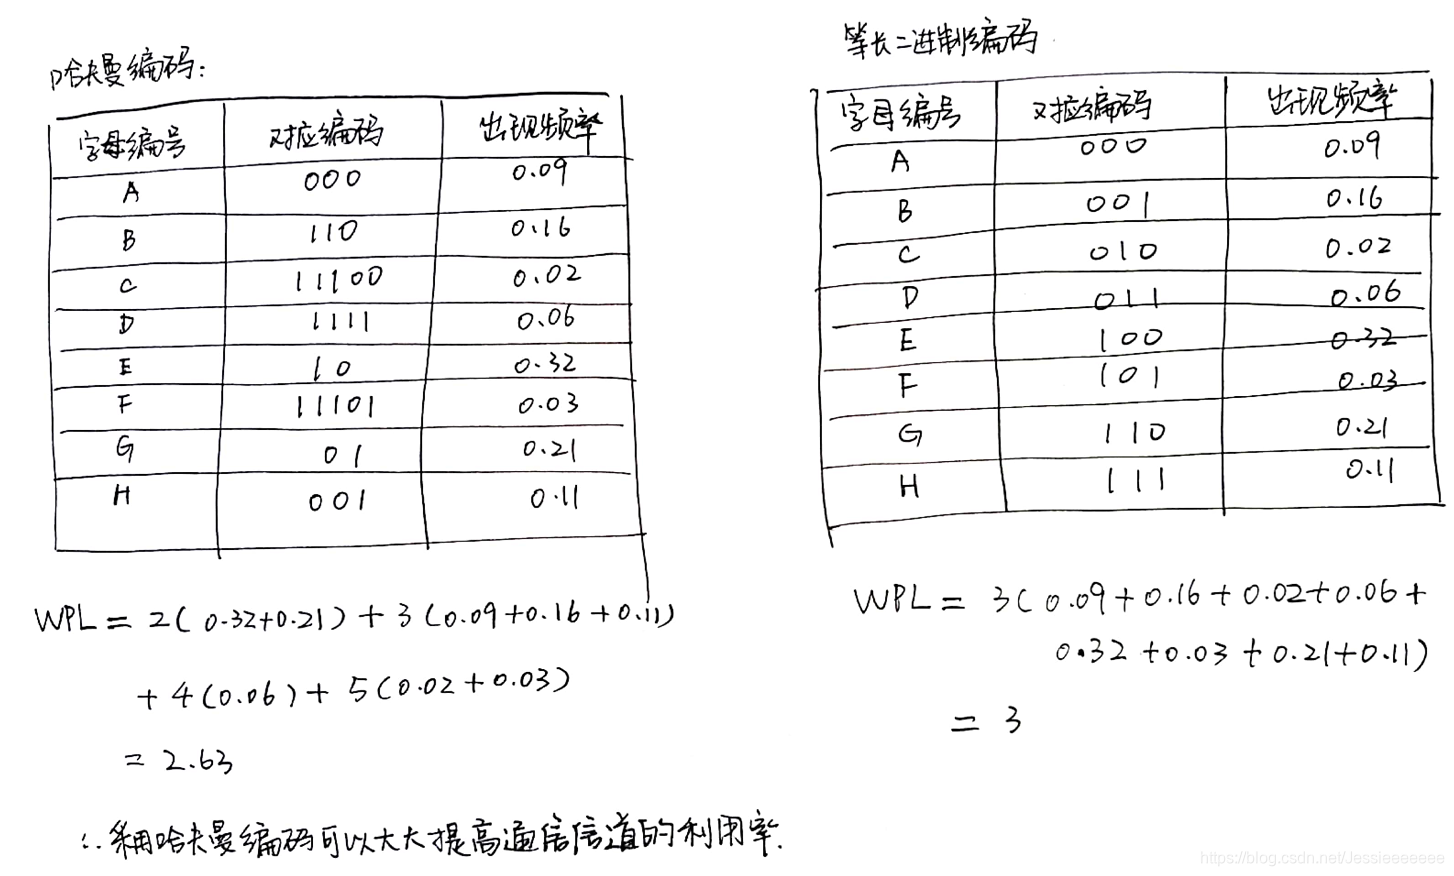 哈夫曼编码:
字母编号 对应编码 出现频率
A 000 0.09
B 110 0.16
C 11100 0.02
D 1111 0.06
E 10 0.32
F 11101 0.03
G 01 0.21
H 001 0.11
WPL = 2(0.32+0.21) + 3(0.09+0.16+0.11)
+ 4(0.06) + 5(0.02+0.03)
= 2.63
∴采用哈夫曼编码可以大大提高通信信道的利用率.
等长二进制编码
字母编号 对应编码 出现频率
A 000 0.09
B 001 0.16
C 010 0.02
D 011 0.06
E 100 0.32
F 101 0.03
G 110 0.21
H 111 0.11
WPL = 3(0.09+0.16+0.02+0.06+
0.32+0.03+0.21+0.11)
= 3
https://blog.csdn.net/Jessieeeeeee